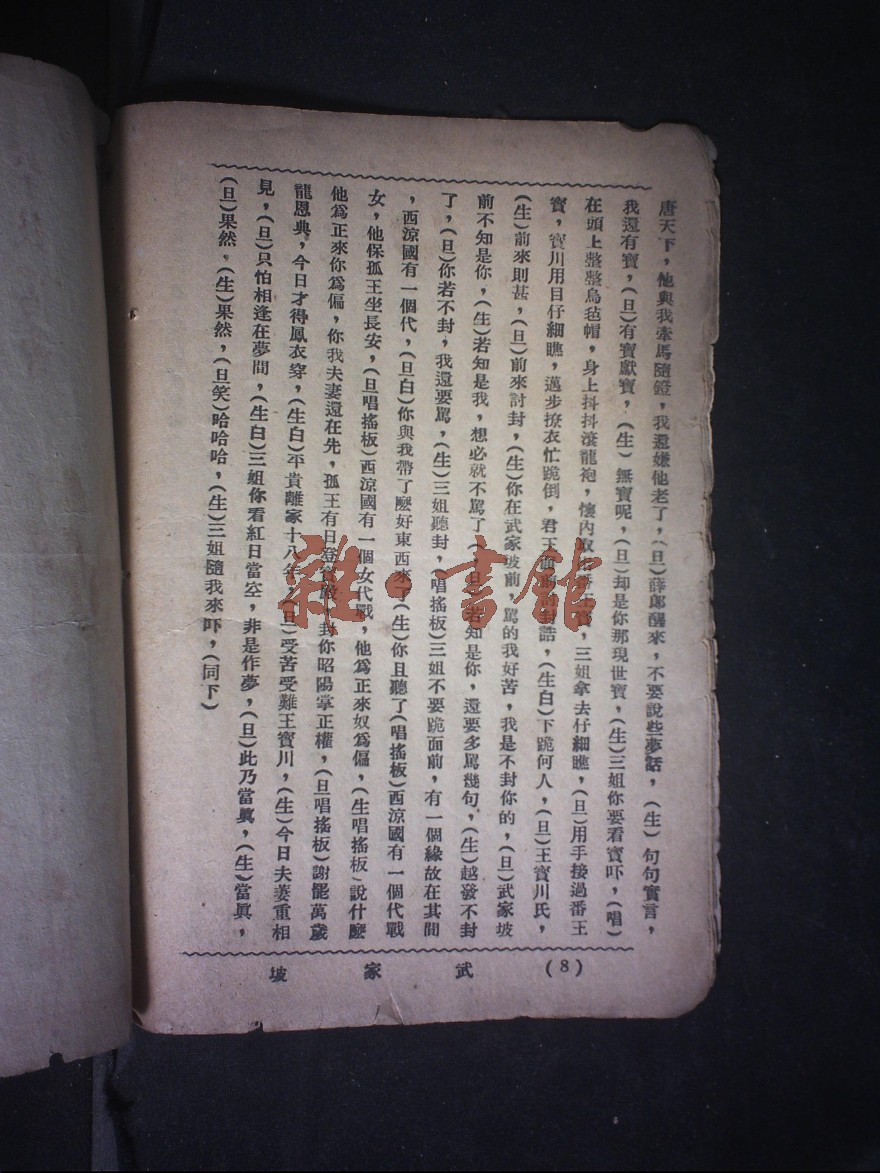 唐天下，他與我牽馬隨鐙，我還嫌他老了，(旦)薛郎醒來，不要說些夢話，(生)句句實言，
我還有寶，(旦)有寶獻寶，(生)無寶呢，(旦)却是你那現世寶，(生)三姐你要看寶吓，(唱)
在頭上整整烏毡帽，身上抖抖滾龍袍，懷內取出番王寶，三姐拿去仔細瞧，(旦)用手接過番王
寶，寶川用目仔細瞧，邁步撩衣忙跪倒，君王面前討封誥，(生白)下跪何人，(旦)王寶川氏，
(生)前來則甚，(旦)前來討封，(生)你在武家坡前，罵的我好苦，我是不封你的，(旦)武家坡
前不知是你，(生)若知是我，想必就不罵了，(旦)若知是你，還要多罵幾句，(生)越發不封
了，(旦)你若不封，我還要罵，(生)三姐聽封，(唱搖板)三姐不要跪面前，有一個緣故在其間
，西涼國有一個代，(旦白)你與我帶了麽好東西來了(生)你且聽了(唱搖板)西涼國有一個代戰
女，他保孤王坐長安，(旦唱搖板)西涼國有一個女代戰，他爲正來奴爲偏，(生唱搖板)說什麽
他爲正來你爲偏，你我夫妻還在先，孤王有日登寶殿，封你昭陽掌正權，(旦唱搖板)謝罷萬歲
龍恩典，今日才得鳳衣穿，(生白)平貴離家十八年，(旦)受苦受難王寶川，(生)今日夫妻重相
見，(旦)只怕相逢在夢間，(生白)三姐你看紅日當空，非是作夢，(旦)此乃當眞，(生)當眞，
(旦)果然，(生)果然，(旦笑)哈哈哈，(生)三姐隨我來吓，(同下)
武家坡
(8)
雜·書館